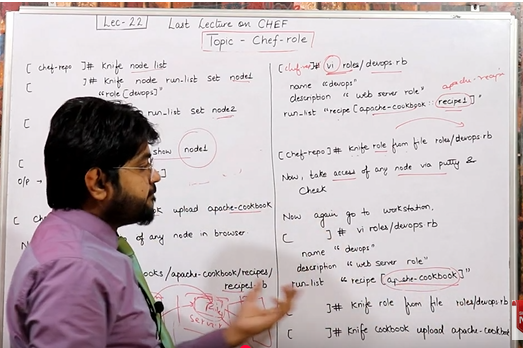 Lec-22
Last Lecture on CHEF
Topic - Chef-role
[ chef-repo ]# Knife node list
]# Knife node run-list set node1
"role [devops]"
run-list set node2
show node1
O/P →
upload apache-cookbook
of any node in browser
/apache-cookbook/recipes/
recipe1.rb
]# vi roles/devops.rb
name "devops"
description "web server role"
apache-recipe
run_list "recipe [apache-cookbook :: recipe1]"
[chef-repo]# Knife role from file roles/devops.rb
Now, take access of any node via putty &
Check
Now again go to workstation.
[ ]# vi roles/devops.rb
name "devops"
description "web server role"
run_list "recipe [apache-cookbook]"
[ ]# Knife role from file roles/devops.rb
[ ]# Knife cookbook upload apache-cookbook